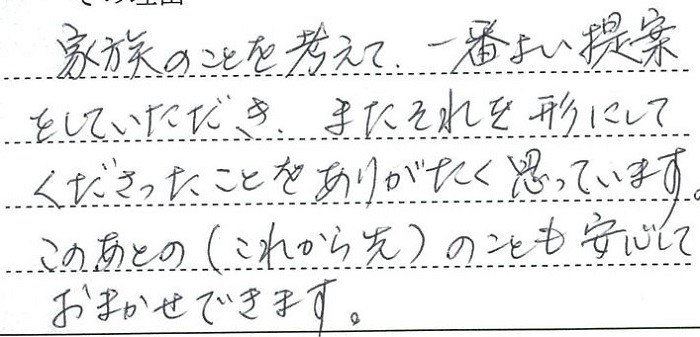 その理由
家族のことを考えて、一番よい提案
をしていただき、またそれを形にして
くださったことをありがたく思っています。
このあとの(これから先)のことも安心して
おまかせできます。